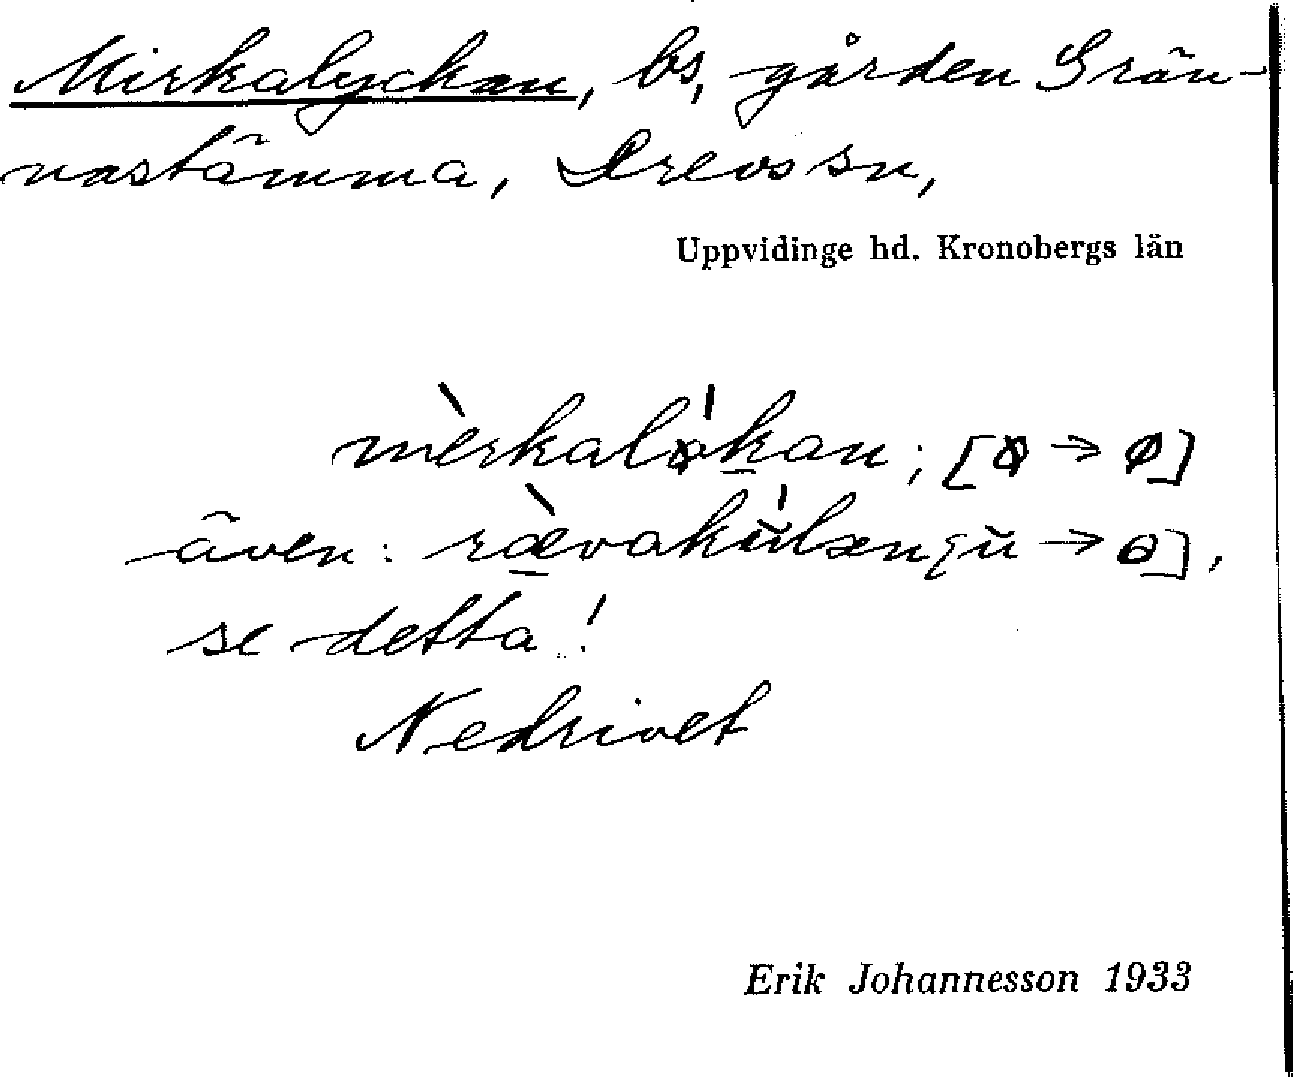 Mirkalyckan, bs, gården Grän-
nastämma, Drevs sn,
Uppvidinge hd. Kronobergs län
mèrkaløkan; [ → ø]
även: rævakùlæn[ù → ɵ],
se detta!
Nedrivet
Erik Johannesson 1933